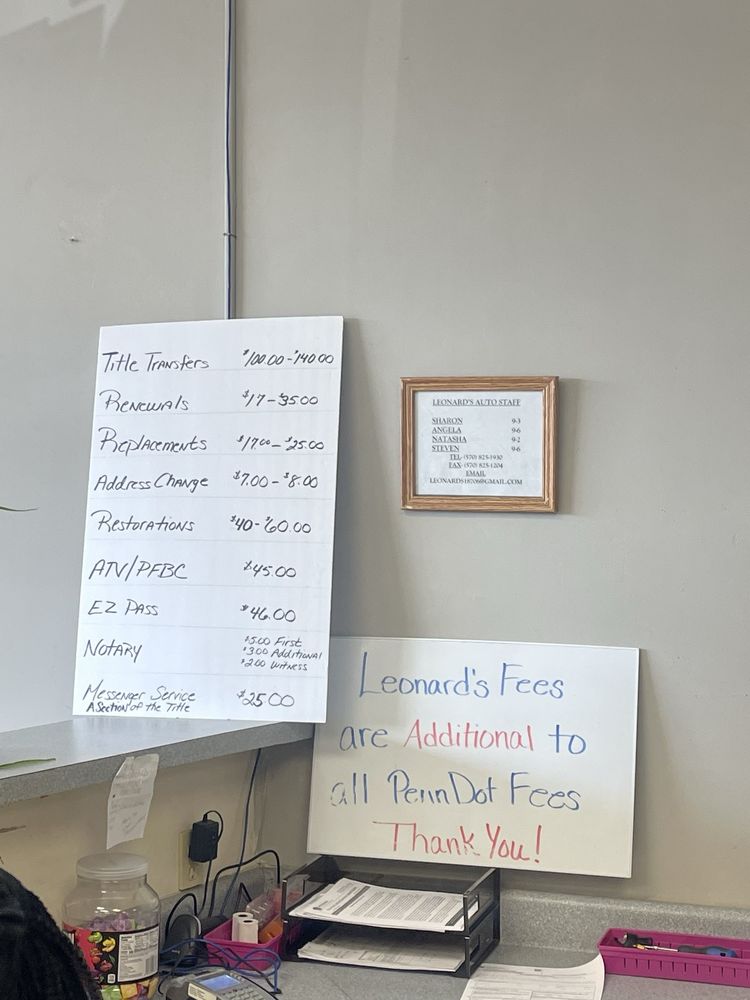 Title Transfers $100.00-$140.00
Renewals $17-$35.00
Replacements $17.00-$25.00
Address Change $7.00-$8.00
Restorations $40-$60.00
ATV/PFBC $45.00
EZ Pass $46.00
Notary $5.00 First
$3.00 Additional
$2.00 Witness
Messenger Service $25.00
A Section of the Title
LEONARD'S AUTO STAFF
SHARON 9-3
ANGELA 9-6
NATASHA 9-2
STEVEN 9-6
TEL (570) 825-1930
FAX (570) 825-1204
EMAIL
LEONARDS18706@GMAIL.COM
Leonard's Fees
are Additional to
all PennDot Fees
Thank You!